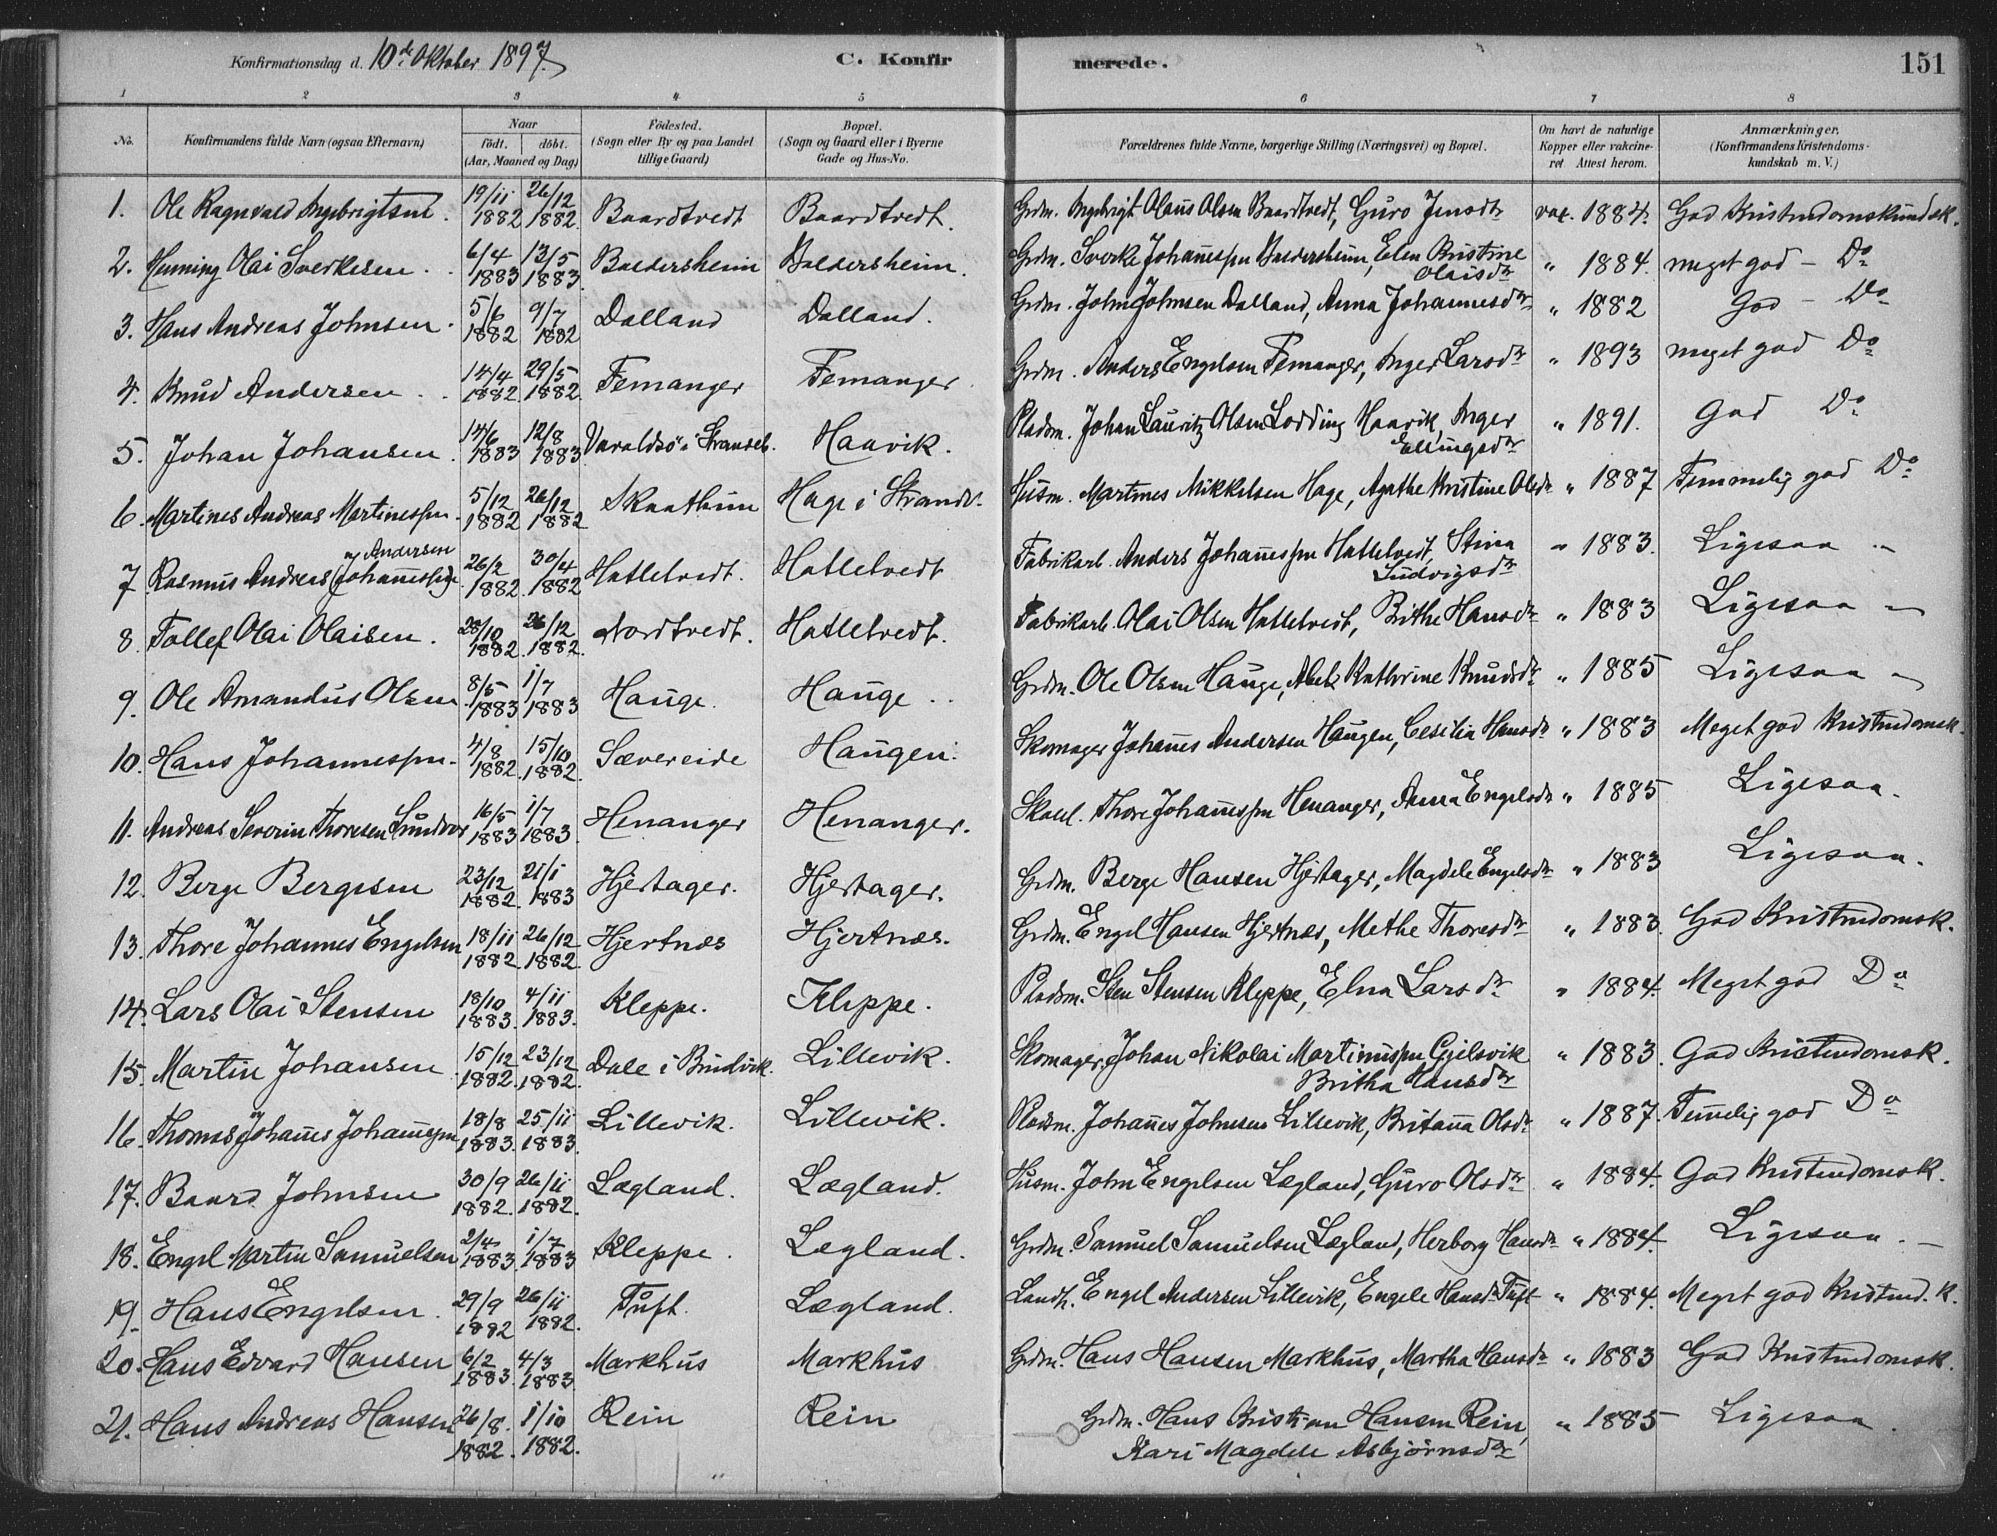 Konfirmationsdag d. 10de Oktober 1897.
C. Konfirmerede.
151
1 2 3 4 5 6 7 8
No. Konfirmandens fulde Navn (ogsaa Efternavn) Naar født. døbt. (Aar, Maaned og Dag) Fødested. (Sogn eller By og paa Landet tillige Gaard) Bopæl. (Sogn og Gaard eller i Byerne Gade og Hus-No. Forældrenes fulde Navne, borgerlige Stilling (Næringsvei) og Bopæl. Om havt de naturlige Kopper eller vakcineret. Attest herom. Anmærkninger. (Konfirmandens Kristendomskundskab m. V.)
1. Ole Ragnvald Ingebrigtsen. 19/11 1882 26/12 1882. Baardtvedt Baardtvedt. Grdm. Ingebrigt Olaus Olsen Baardtvedt, Guro Jensdr vac. 1884. God Kristendomskundsk.
2. Henning Olai Sverkesen. 6/4 1883 13/5 1883. Baldersheim Baldersheim. Grdm. Sverke Johannessen Baldersheim, Elen Kristine Olaisdr " 1884. meget god – Do
3. Hans Andreas Johnsen. 5/6 1882 9/7 1882 Dalland Dalland. Grdm. John Johnsen Dalland, Anna Johannesdr " 1882 God – Do
4. Knud Andersen. 14/4 1882. 29/5 1882. Femanger Femanger. Grdm. Anders Engelsen Femanger, Inger Larsdr " 1893 meget god Do
5. Johan Johansen. 14/6 1883 12/8 1883. Varaldsø i Strandeb. Haavik. Pladsm. Johan Lauritz Olsen Lodding Haavik, Inger Ellingsdr " 1891. God Do
6. Martines Andreas Martinessen. 5/12 1882 26/12 1882 Skaathun Hage i Strandv. Husm. Martines Mikkelsen Hage, Agathe Kristine Olsdr " 1887 Temmelig god Do
7. Rasmus Andreas (Johannessen) Andersen 26/2 1882. 30/4 1882 Hatletvedt. Hatletvedt Fabrikarb. Anders Johannessen Hatletvedt, Stina Ludvigsdr " 1883. Ligesaa "
8. Tollef Olai Olaisen. 28/10 1882. 26/12 1882. Nordtvedt. Hatletvedt. Fabrikarb. Olai Olsen Hatletvedt, Brithe Hansdr " 1883 Ligesaa –
9. Ole Amandus Olsen 8/5 1883 1/7 1883 Hauge. Hauge.. Grdm. Ole Olsen Hauge, Abel Kathrine Knudsdr " 1885 Ligesaa –
10. Hans Johannessen. 4/8 1882 15/10 1882. Sævereide Haugen. Skomager Johannes Andersen Haugen, Cesilia Hansdr " 1883 Meget god Kristendomsk.
11. Andreas Severin Thoresen Sundvor 16/5 1883 1/7 1883. Henanger Henanger. Skoel. Thore Johannessen Henanger, Anna Engelsdr " 1885 Ligesaa.
12. Berge Bergesen 23/12 1882. 21/1 1883 Hjertager. Hjertager. Grdm. Berge Hansen Hjertager, Magdele Engelsdr " 1883 Ligesaa.
13. Thore Johannes Engelsen 18/11 1882. 26/12 1882. Hjertnæs Hjertnæs. Grdm. Engel Hansen Hjertnæs, Methe Thoresdr " 1883. God Kristendomsk.
14. Lars Olai Stensen 18/10 1883. 4/11 1883. Kleppe. Kleppe. Pladsm. Sten Stensen Kleppe, Elna Larsdr " 1884. Meget god Do
15. Martin Johansen. 15/12 1882. 23/12 1882. Dale i Bruvik. Lillevik. Skomager. Johan Nikolai Martinussen Gjelsvik Britha Hansdr " 1883. God Kristendomsk.
16. Thomas Johannes Johannessen 18/8 1883. 25/11 1883. Lillevik. Lillevik. Pladsm. Johannes Johnsen Lillevik, Britanna Olsdr " 1887. Temmelig god Do
17. Baard Johnsen 30/9 1882. 26/11 1882. Lægland. Lægland. Husm. John Engelsen Lægland, Guro Olsdr " 1884. God Kristendomsk.
18. Engel Martin Samuelsen 2/4 1883. 1/7 1883 Kleppe. Lægland. Grdm. Samuel Samuelsen Lægland, Herborg Hansdr " 1884. Ligesaa. –
19. Hans Engelsen. 29/9 1882 26/11 1882. Tuft. Lægland. Landh. Engel Andersen Lillevik, Engele Hansdr Tuft " 1884. Meget god Kristend.k.
20. Hans Edvard Hansen 6/2 1883. 4/3 1883. Markhus Markhus Grdm. Hans Hansen Markhus, Martha Hansdr " 1883 God Kristendomsk.
21. Hans Andreas Hansen 26/8. 1882. 1/10 1882. Rein Rein Grdm. Hans Kristian Hansen Rein, Kari Magdele Asbjørnsdr " 1885 Ligesaa.